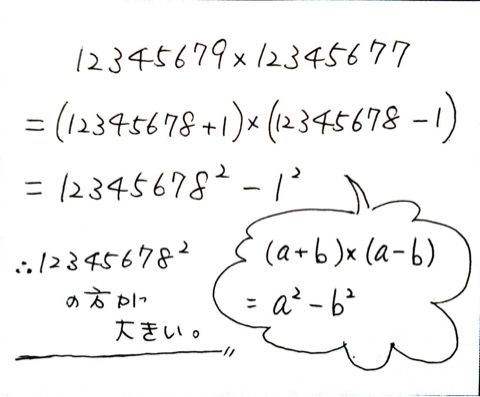 12345679×12345677
=(12345678+1)×(12345678-1)
=12345678²-1²
∴12345678²
の方が
大きい。
(a+b)×(a-b)
=a²-b²